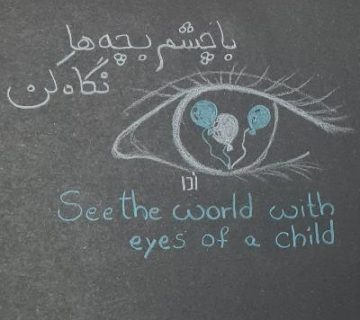 با چشم بچه ها
نگاه کن
See the world with
eyes of a child